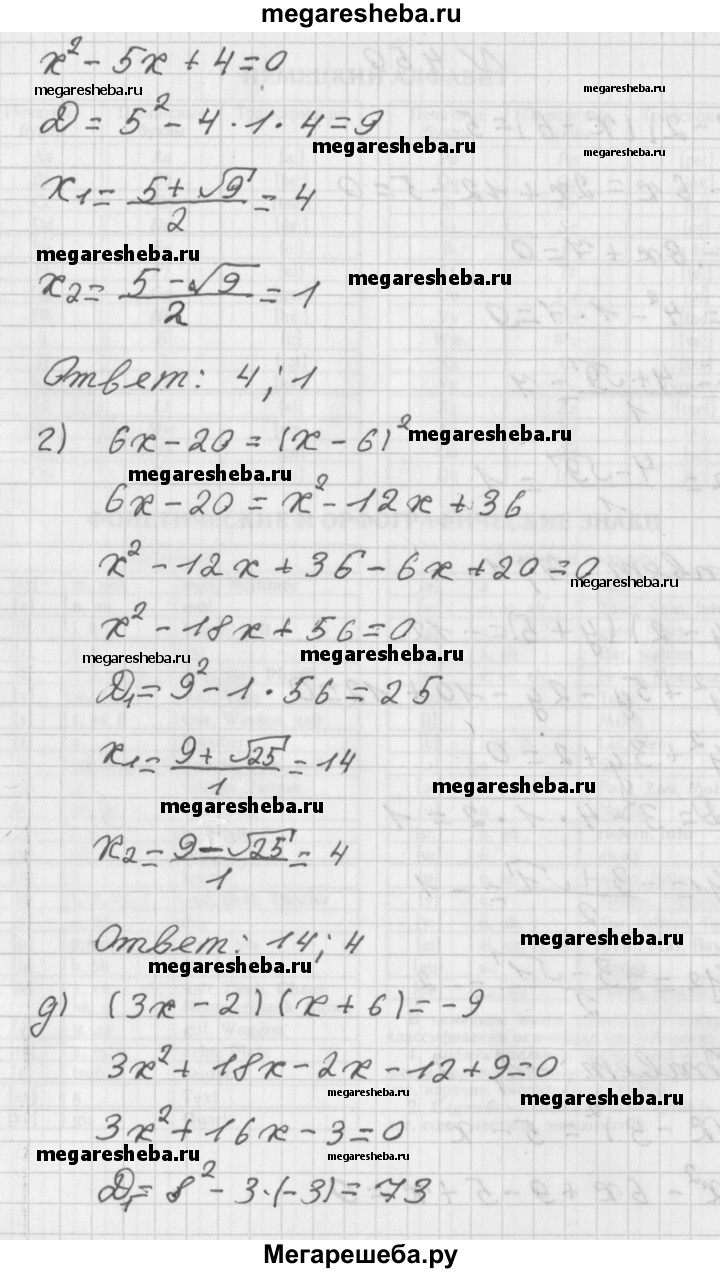 megaresheba.ru
x² - 5x + 4 = 0
megaresheba.ru
megaresheba.ru
D = 5² - 4 · 1 · 4 = 9
megaresheba.ru
megaresheba.ru
x₁ = (5 + √9)/2 = 4
megaresheba.ru
megaresheba.ru
x₂ = (5 - √9)/2 = 1
Ответ: 4; 1
г) 6x - 20 = (x - 6)²
megaresheba.ru
megaresheba.ru
6x - 20 = x² - 12x + 36
x² - 12x + 36 - 6x + 20 = 0
megaresheba.ru
x² - 18x + 56 = 0
megaresheba.ru
megaresheba.ru
D₁ = 9² - 1 · 56 = 25
x₁ = (9 + √25)/1 = 14
megaresheba.ru
megaresheba.ru
x₂ = (9 - √25)/1 = 4
Ответ: 14; 4
megaresheba.ru
megaresheba.ru
д) (3x - 2)(x + 6) = -9
3x² + 18x - 2x - 12 + 9 = 0
megaresheba.ru
megaresheba.ru
3x² + 16x - 3 = 0
megaresheba.ru
megaresheba.ru
D₁ = 8² - 3·(-3) = 73
Мегарешеба.ру